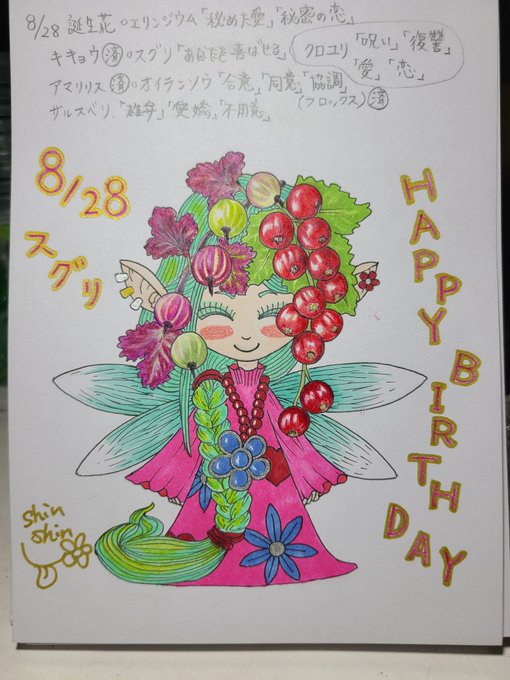 8/28 誕生花。エリンジウム「秘めた愛」「秘密の恋」
キキョウ済。スグリ「あなたを喜ばせる」
クロユリ「呪い」「復讐」
「愛」「恋」
アマリリス済。オイランソウ「合意」「同意」「協調」
(フロックス)済
サルスベリ.「雄弁」「愛嬌」「不用意」
8/28
スグリ
HAPPY BIRTHDAY
Shin
Shin